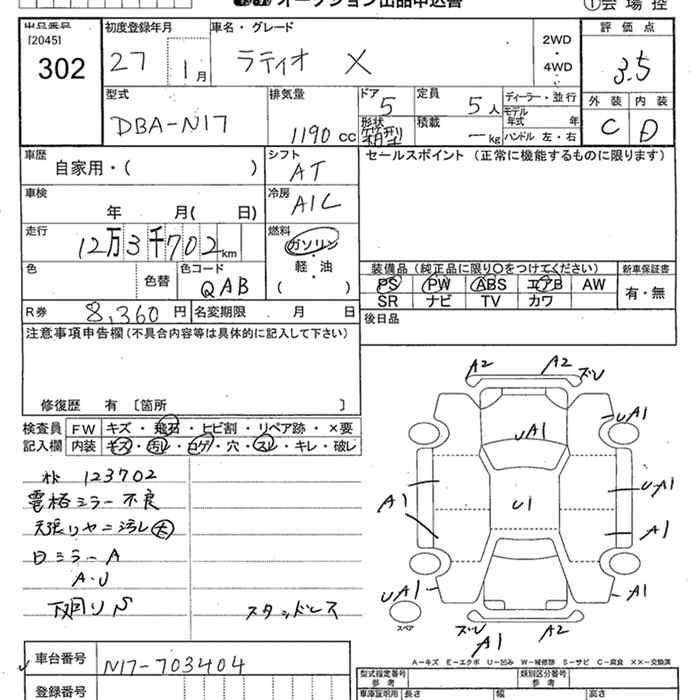 オークション出品申込書
①会場控
出品番号
[2045]
302
初度登録年月
27 1月
車名・グレード
ラティオ X
2WD
・
4WD
評価点
3.5
型式
DBA-N17
排気量
1190cc
ドア
5
形状
箱型
定員
5人
積載
―kg
ディーラー・並行
モデル年式 年
ハンドル 左・右
外装 内装
C D
車歴
自家用・( )
シフト
AT
セールスポイント (正常に機能するものに限ります)
車検
年 月( 日)
冷房
A/C
走行
12万3千702km
燃料
ガソリン
・
軽・油
・
( )
色
色替
色コード
QAB
装備品 (純正品に限り〇をつけてください)
新車保証書
PS PW ABS エアB AW
SR ナビ TV カワ
有・無
R券
8,360円
名変期限 月 日
後日品
注意事項申告欄(不具合内容等は具体的に記入して下さい)
修復歴 有 [箇所 ]
検査員
記入欄
FW キズ・飛石・ヒビ割・リペア跡・×要
内装 キズ・汚レ・コゲ・穴・スレ・キレ・破レ
123702
電格ミラー不良
天張りヤニ汚レ大
日ミラーA
A・U
下廻りS
スタッドレス
A2
A2
ズレ
UA1
UA1
A1
U1
UA1
A1
UA1
A1
スペア
ズレ
A1
A2
A-キズ E-エクボ U-凹み W-補修跡 S-サビ C-腐食 ××-交換済
車台番号
N17-703404
登録番号
型式指定番号
参考
類別区分番号
参考
車庫証明用
長さ 幅 高さ